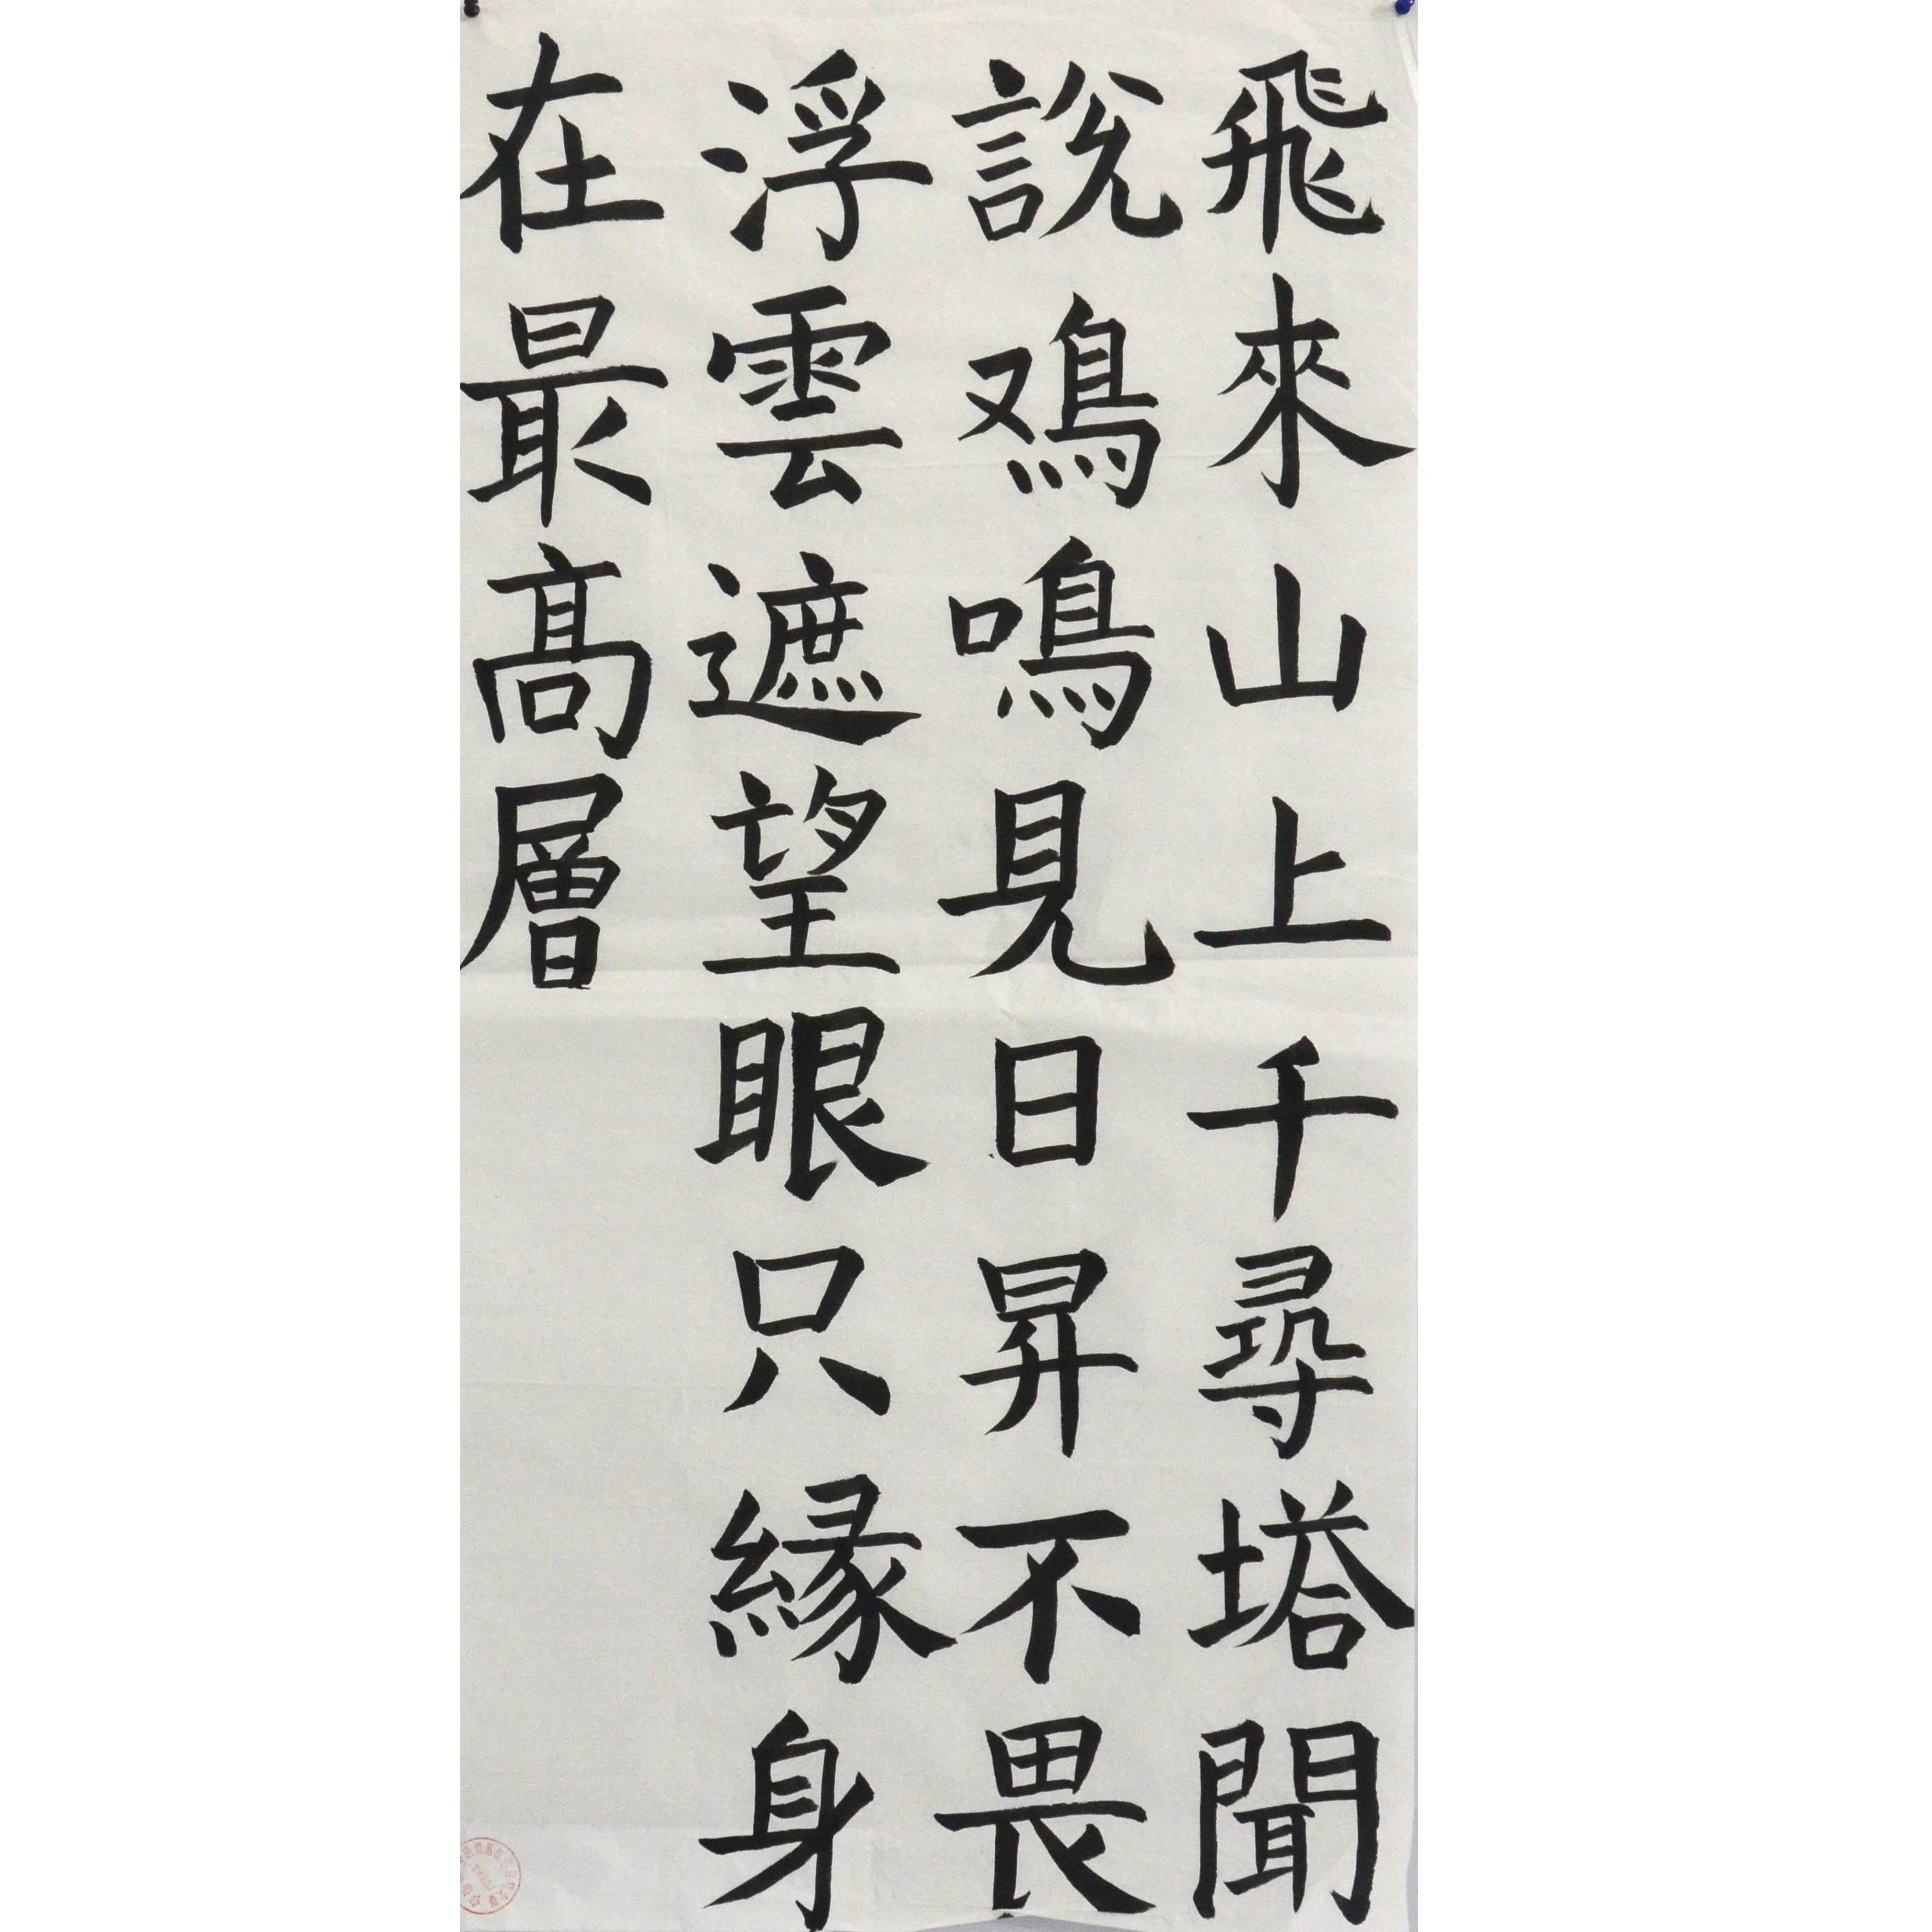 飛來山上千尋塔聞
説鳮鳴見日昇不畏
浮雲遮望眼只緣身
在最髙層